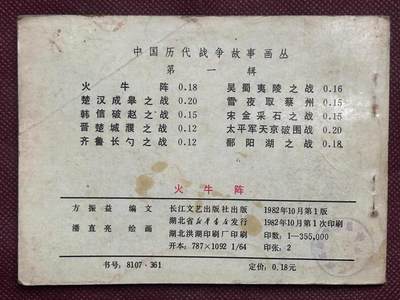 中国历代战争故事画丛
第一辑
火牛阵 0.18 吴蜀夷陵之战 0.16
楚汉成皋之战 0.20 雪夜取蔡州 0.15
韩信破赵之战 0.15 宋金采石之战 0.15
晋楚城濮之战 0.12 太平军天京破围战 0.20
齐鲁长勺之战 0.12 鄱阳湖之战 0.18
火牛阵
方振益 编文 长江文艺出版社出版 1982年10月第1版
潘直亮 绘画 湖北省新华书店发行 1982年10月第1次印刷
湖北洪湖印刷厂印刷 印数:1—355,000
开本:787×1092 1/64 印张:2
书号:8107·361 定价:0.18元